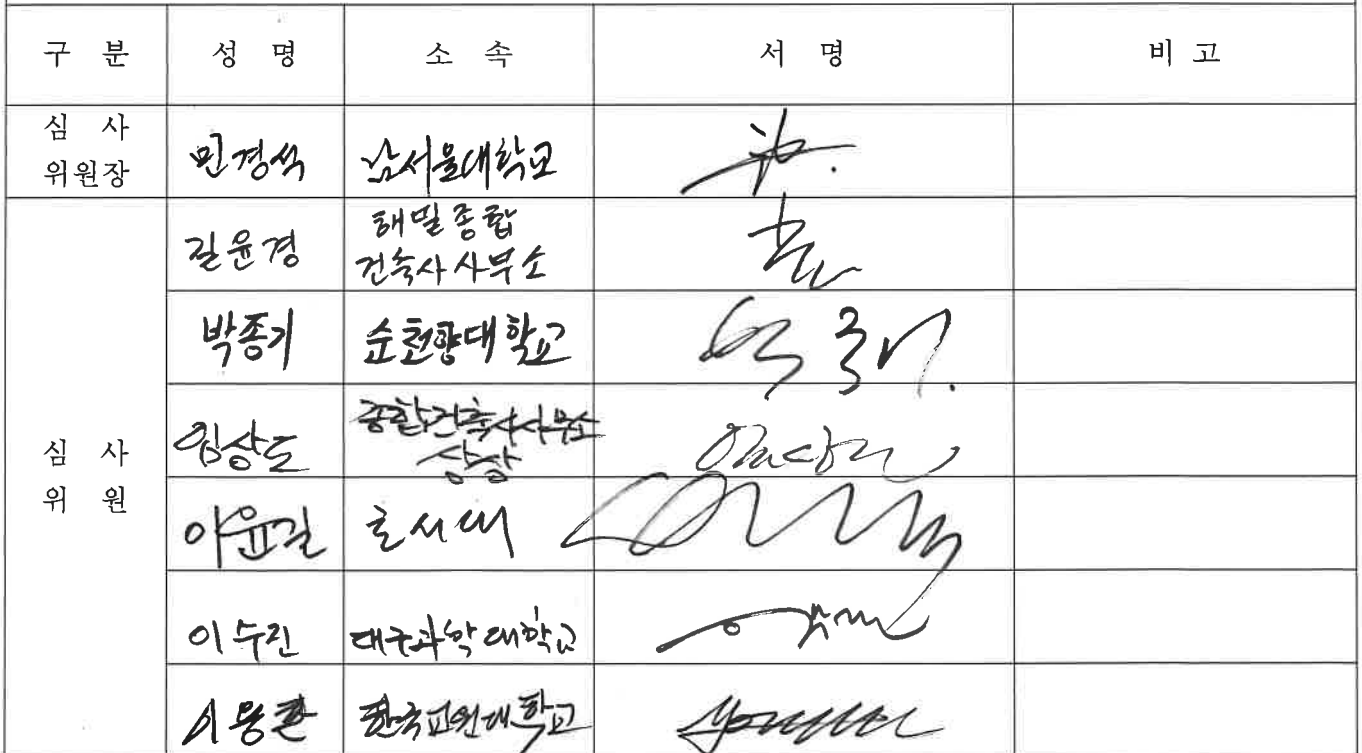 구 분 성 명 소 속 서 명 비 고
심 사
위원장
민경석 남서울대학교
길윤경 해밀종합
건축사사무소
박종기 순천향대학교 박종기
심 사
위 원
임상도 종합건축사사무소
상상
이윤길 호서대
이수진 대구과학대학교
이용환 한국교원대학교